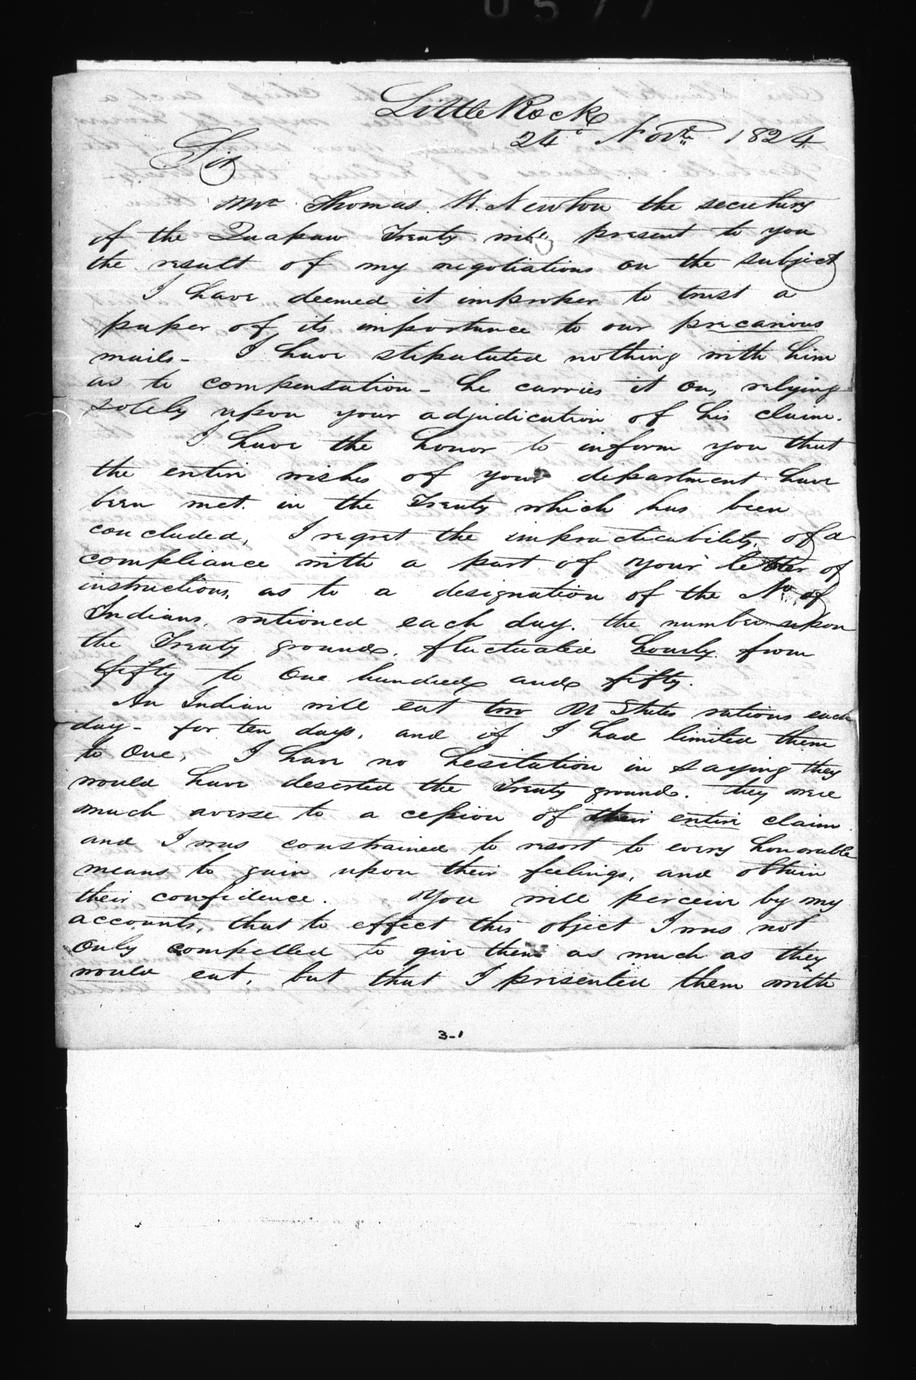 0577
Little Rock
24th Novr 1824
Sir
Mr Thomas W. Newton the secretary
of the Quapaw Treaty will present to you
the result of my negotiations on the subject
I have deemed it improper to trust a
paper of its importance to our precarious
mails - I have stipulated nothing with him
as to compensation - he carries it on, relying
solely upon your adjudication of his claim.
I have the honor to inform you that
the entire wishes of your department have
been met in the Treaty which has been
concluded, I regret the impracticability of a
compliance with a part of your letter of
instructions, as to a designation of the No of
Indians, rationed each day, the number upon
the Treaty grounds, fluctuated hourly from
fifty to One hundred and fifty.
An Indian will eat two U States rations each
day - for ten days, and if I had limited them
to One, I have no hesitation in saying they
would have deserted the Treaty grounds. they were
much averse to a cession of their entire claim
and I was constrained to resort to every honorable
means to gain upon their feelings, and obtain
their confidence. You will perceive by my
accounts, that to effect this object I was not
only compelled to give them as much as they
would eat, but that I presented them with
3-1